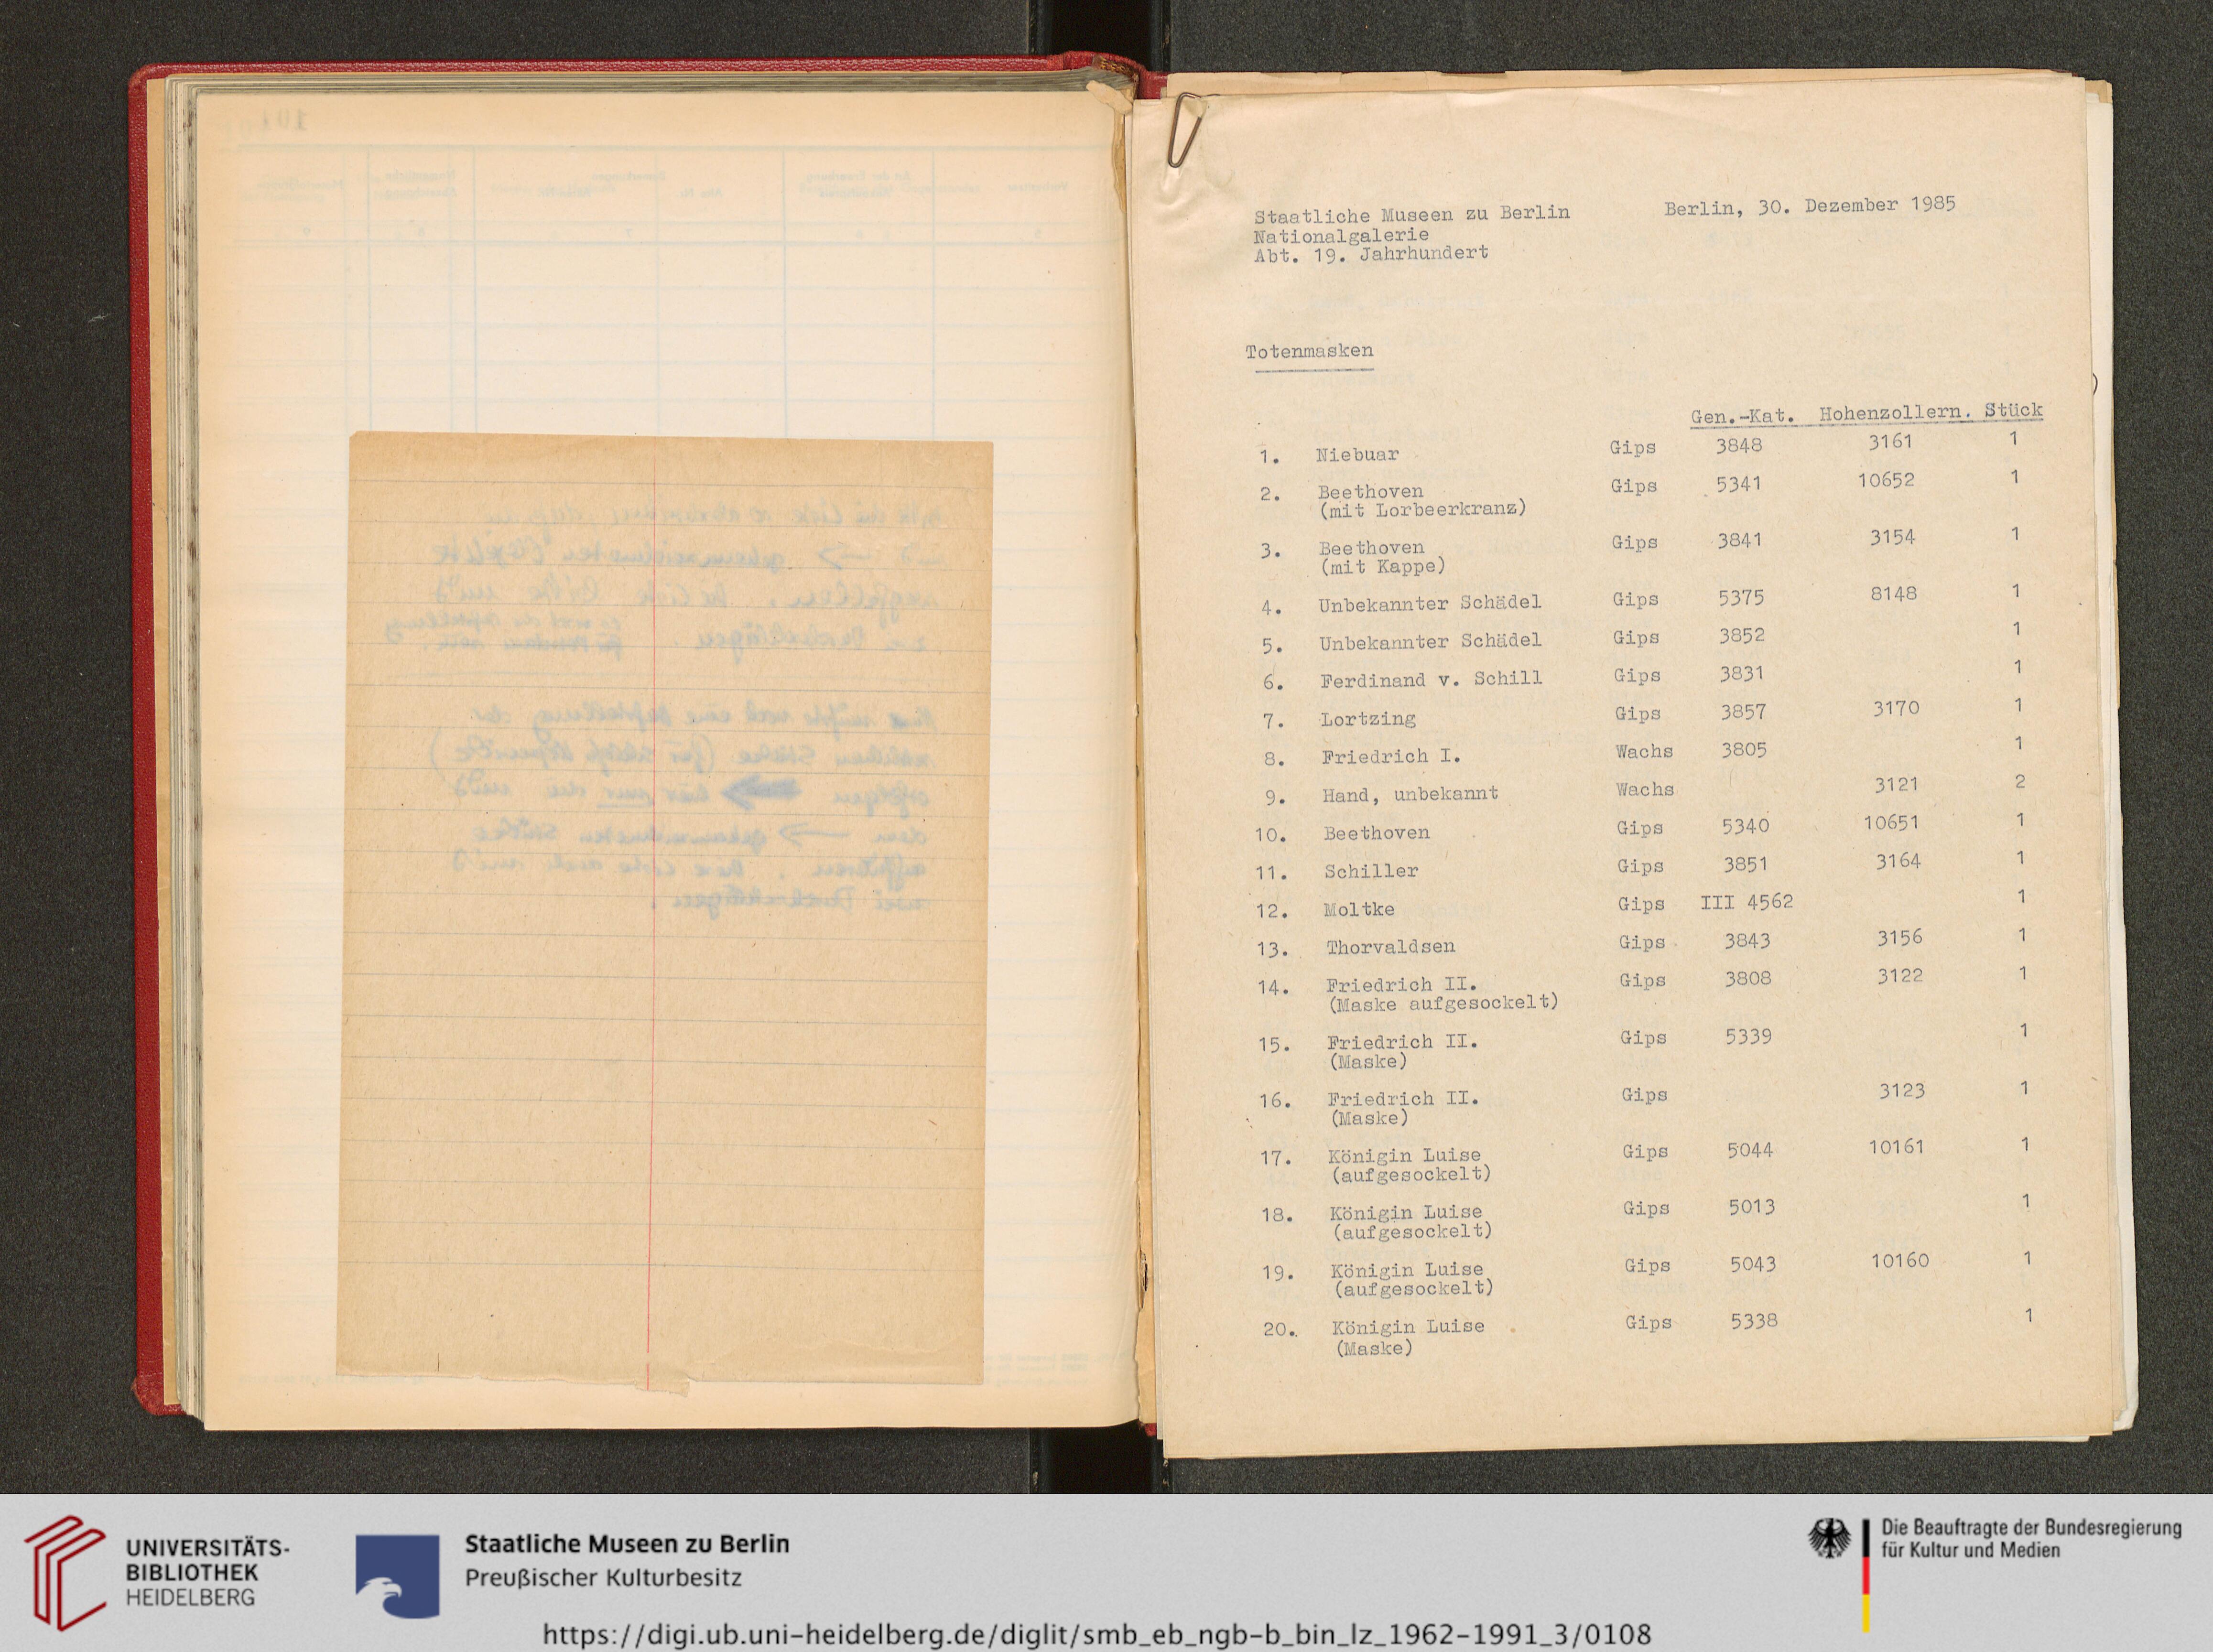 Staatliche Museen zu Berlin Berlin, 30. Dezember 1985
Nationalgalerie
Abt. 19. Jahrhundert
Totenmasken
Gen.-Kat. Hohenzollern. Stück
1. Niebuar Gips 3848 3161 1
2. Beethoven Gips 5341 10652 1
(mit Lorbeerkranz)
3. Beethoven Gips 3841 3154 1
(mit Kappe)
4. Unbekannter Schädel Gips 5375 8148 1
5. Unbekannter Schädel Gips 3852 1
6. Ferdinand v. Schill Gips 3831 1
7. Lortzing Gips 3857 3170 1
8. Friedrich I. Wachs 3805 1
9. Hand, unbekannt Wachs 3121 2
10. Beethoven Gips 5340 10651 1
11. Schiller Gips 3851 3164 1
12. Moltke Gips III 4562 1
13. Thorvaldsen Gips 3843 3156 1
14. Friedrich II. Gips 3808 3122 1
(Maske aufgesockelt)
15. Friedrich II. Gips 5339 1
(Maske)
16. Friedrich II. Gips 3123 1
(Maske)
17. Königin Luise Gips 5044 10161 1
(aufgesockelt)
18. Königin Luise Gips 5013 1
(aufgesockelt)
19. Königin Luise Gips 5043 10160 1
(aufgesockelt)
20. Königin Luise Gips 5338 1
(Maske)
UNIVERSITÄTS-
BIBLIOTHEK
HEIDELBERG
Staatliche Museen zu Berlin
Preußischer Kulturbesitz
Die Beauftragte der Bundesregierung
für Kultur und Medien
https://digi.ub.uni-heidelberg.de/diglit/smb_eb_ngb-b_bin_lz_1962-1991_3/0108